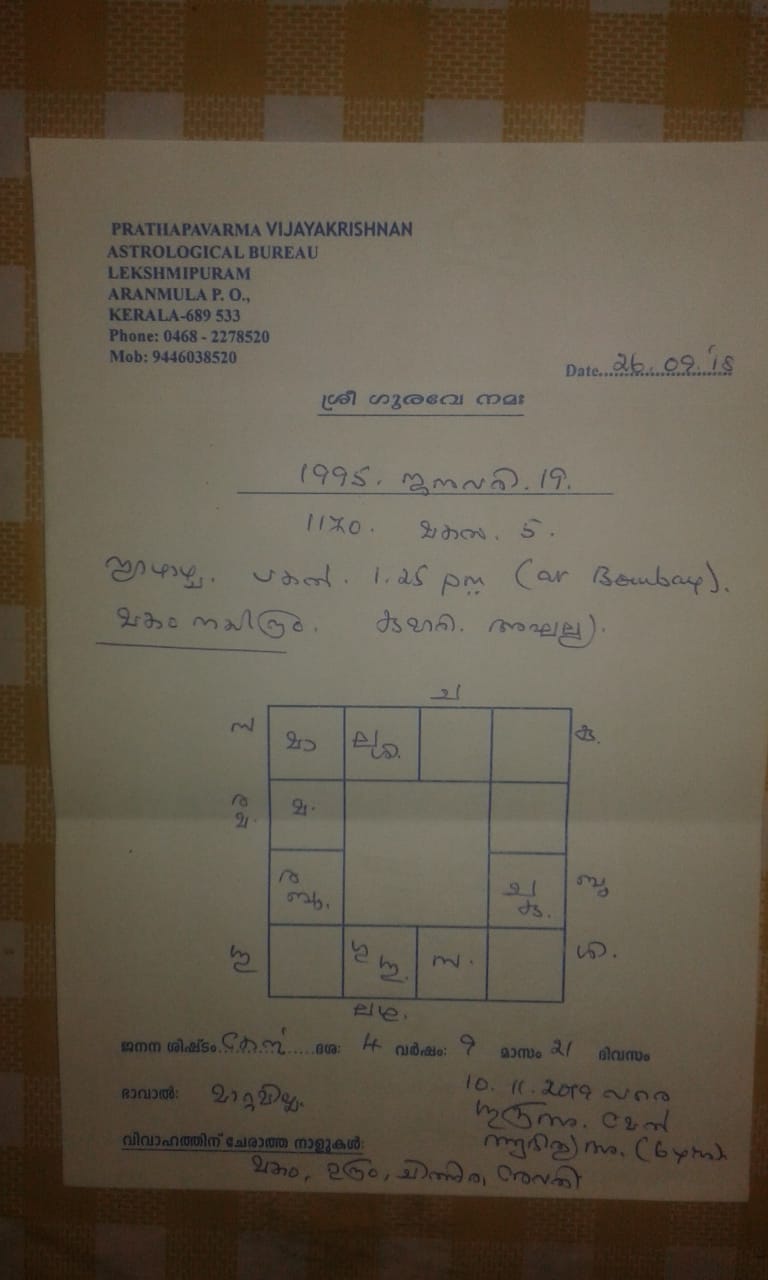 PRATHAPAVARMA VIJAYAKRISHNAN
ASTROLOGICAL BUREAU
LEKSHMIPURAM
ARANMULA P. O.,
KERALA-689 533
Phone: 0468 - 2278520
Mob: 9446038520
Date 26. 09. '18
ശ്രീ ഗുരവേ നമഃ
1995. ജനുവരി. 19.
1170. മകരം. 5.
വ്യാഴാഴ്ച. പകൽ. 1.25 pm (at Bombay).
മകം നക്ഷത്രം.
ച
സ മാ ലശി. കു.
ര മ. മ.
ര ബു. ച കു. ബു
ഗു ശു. സ. ശി.
ലഗു.
ജനന ശിഷ്ടം കേതു ദശ: 4 വർഷം: 9 മാസം 21 ദിവസം
ഭാവാൽ: മാറ്റമില്ല. 10. 11. 2019 വരെ
വിവാഹത്തിന് ചേരാത്ത നാളുകൾ:
മകം, ഉത്രം, ചിത്തിര, രേവതി